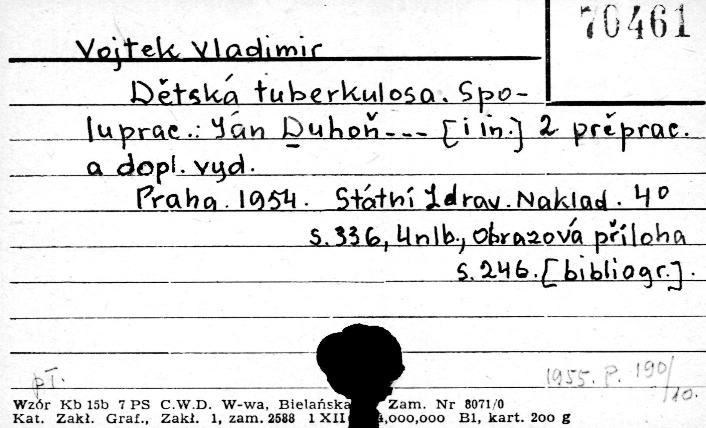 70461
Vojtek Vladimir
Dětská tuberkulosa. Spo-
luprac.: Ján Duhoň --- [i in.] 2 prěprac.
a dopl. vyd.
Praha. 1954. Státní Zdrav. Naklad. 4º
s. 336, 4nlb., obrazová příloha
s. 246. [bibliogr.].
pT.
1955. P. 190/10.
Wzór Kb 15b 7 PS C.W.D. W-wa, Bielańska Zam. Nr 8071/0
Kat. Zakł. Graf., Zakł. 1, zam. 2588 1 XII ,000,000 B1, kart. 200 g